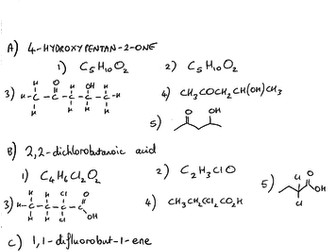 A) 4-HYDROXYPENTAN-2-ONE
1) C5H10O2 2) C5H10O2
3) H H O H OH H
H-C-C-C-C-C-H
H H H H
4) CH3COCH2CH(OH)CH3
5) O OH
B) 2,2-dichlorobutanoic acid
1) C4H6Cl2O2 2) C2H3ClO
3) H H Cl O
H-C-C-C-C
H H Cl OH
4) CH3CH2CCl2CO2H
5) Cl O
Cl OH
C) 1,1-difluorobut-1-ene